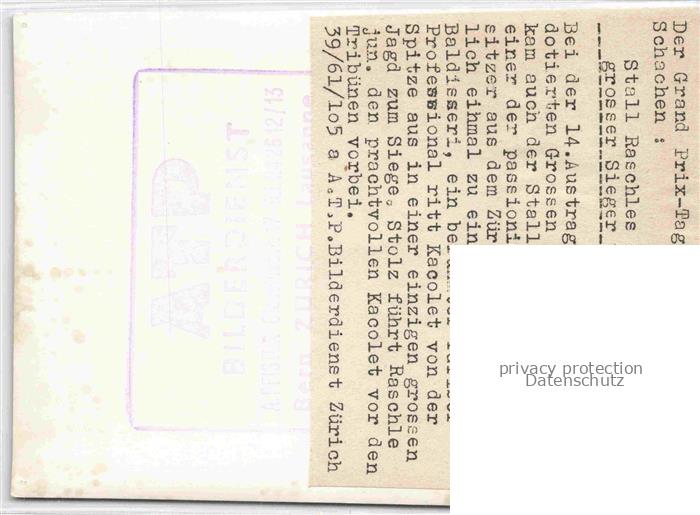 Der Grand Prix-Tag
Schachen :
Stall Raschles
grosser Sieger
Bei der 14.Austrag
dotierten Grossen
kam auch der Stall
einer der passioni
sitzer aus dem Zür
lich eihmal zu ein
Baldisseri, ein
Professional ritt Kacolet von der
Spitze aus in einer einzigen grossen
Jagd zum Siege. Stolz führt Raschle
jun. den prachtvollen Kacolet vor den
Tribünen vorbei.
39/61/105 a A.T.P.Bilderdienst Zürich
BILDERDIENST
Bern ZÜRICH Lausanne
privacy protection
Datenschutz